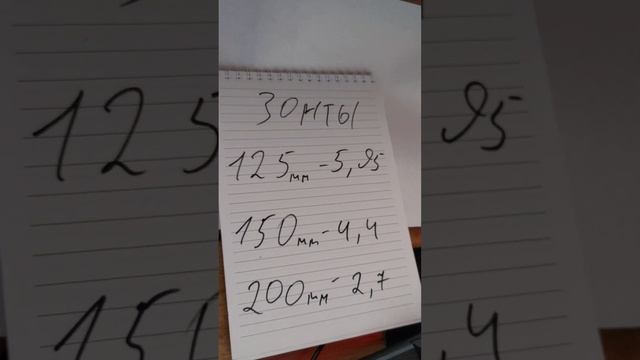 ЗОНТЫ
125мм-5,95
150мм-4,4
200мм-2,7